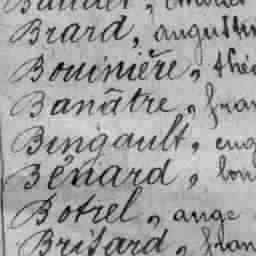 Brard, augustin
Bouinière, théo
Banâtre, fran
Bingault, eug
Bénard, 
Botrel, ange
Brisard, fran